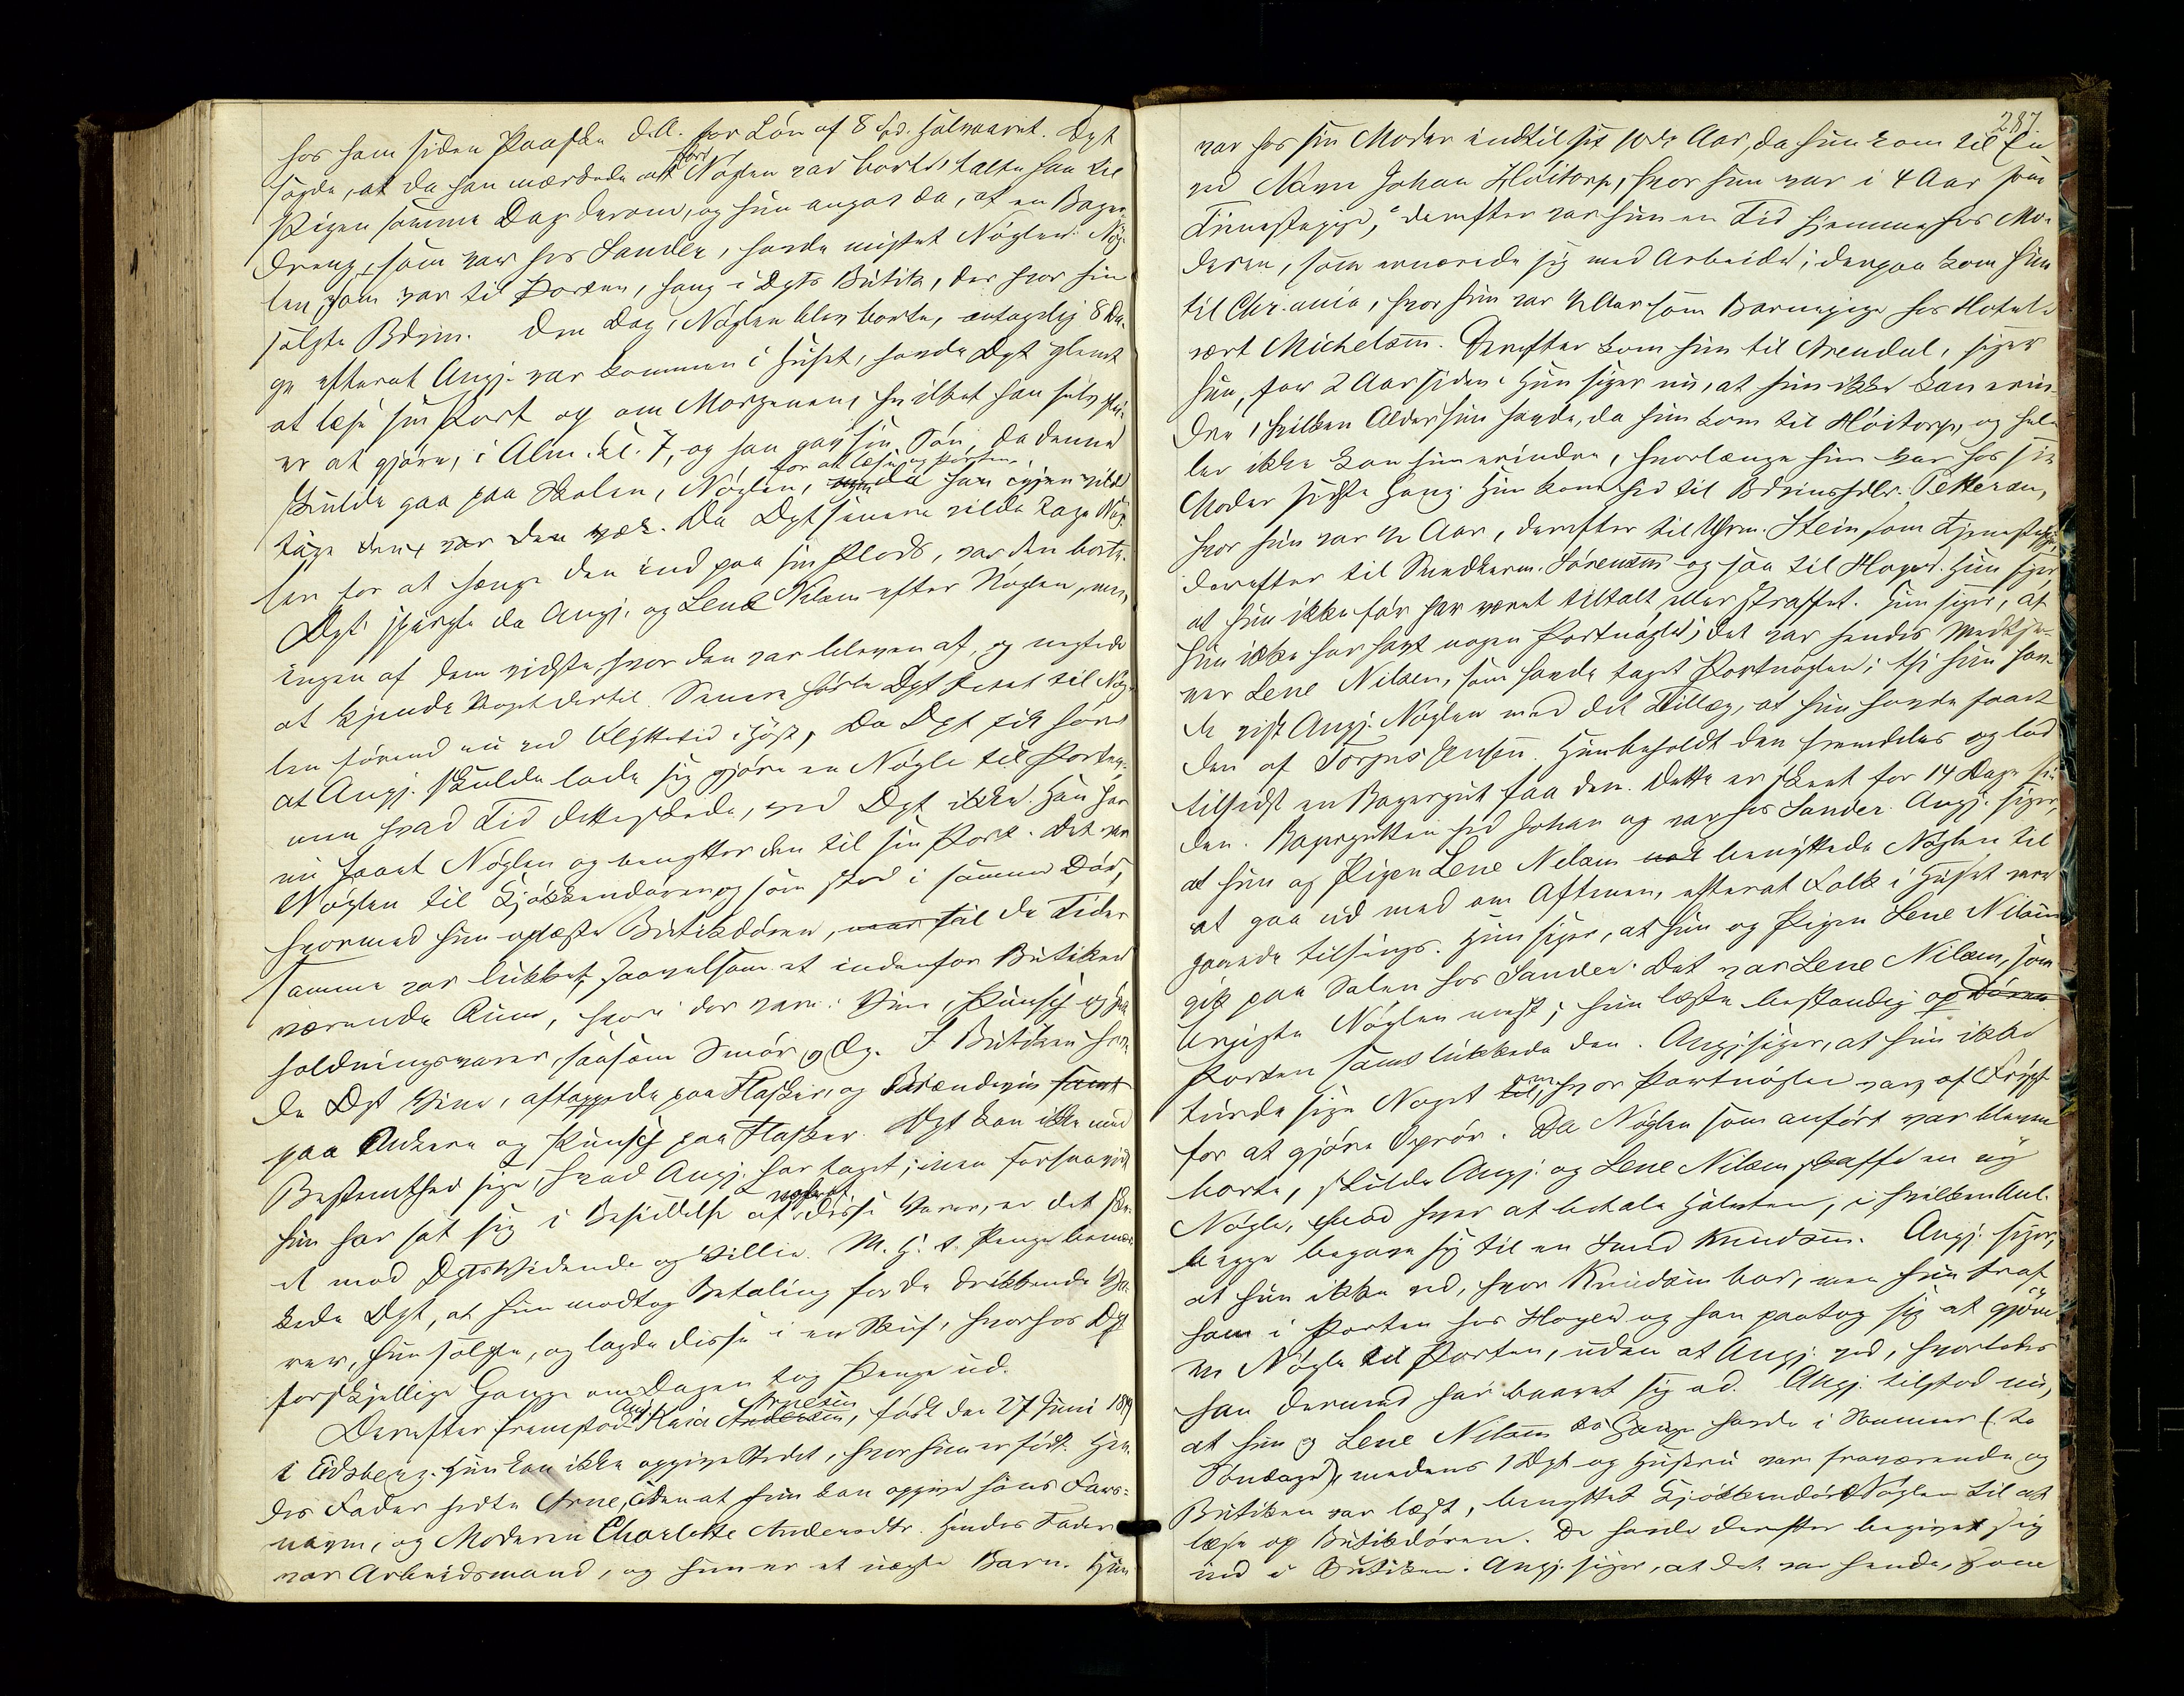 hos ham siden Paaske d.A. for Løn af 8 Spd. Halvaaret. Dgt
sagde, at da han mærkede at først Nøglen var borte, talte han til
Pigen samme Dag derom, og hun angav da, at en Bager-
dreng, som var hos Sander, havde mistet Nøglen. Nøg-
len som var til Porten, hang i Dgts Butik, der hvor hun
solgte Bdvin. Den Dag, Nøglen blev borte, antagelig 8 Da-
ge efterat Angj. var kommen i Huset, havde Dgt glemt
at læse sin Port op om Morgenen, hvilket han selv plei-
er at gjøre, i Alm. Kl. 7, og han gav sin Søn, da denne
skulde gaa paa Skolen, Nøglen, for at læse op Porten, da han igjen vilde
tage den, var den væk. Da Dgt senere vilde tage Nøg-
len for at hænge den ind paa sin Plads, var den borte.
Dgt spurgte da Angj. og Lene Nilsen efter Nøglen, men
ingen af dem vidste, hvor den var bleven af, og negtede
at kjende Noget dertil. Senere hørte Dgt Intet til Nøg-
len førend nu ved Flyttetid i Høst, da Dgt fik høre
at Angj. skulde lade sig gjøre en Nøgle til Porten,
men hvad Tid dette skede, ved Dgt ikke. Han har
nu faaet Nøglen og benytter den til sin Port. Det var
Nøglen til Kjøkkendøren og som stod i samme Dør,
hvormed hun oplæste Butikdøren, til de Tider
samme var lukket, saavelsom et indenfor Butiken
værende Rum, hvori der var: Vine, Punsch og Huus-
holdningsvarer, saasom Smør o Dg. I Butiken hav-
de Dgt Vine, aftappede paa Flasker, og Brændevin
paa Ankere og Punsch paa Flasker. Dgt kan ikke med
Bestemthed sige, hvad Angj. har taget; men forsaavidt
hun har sat sig i Besiddelse af noget af disse Varer, er det ske-
et mod Dgts Vidende og Villie. M. H. t. Penge bemær-
kede Dgt, at hun modtog Betaling for de drikkende Va-
rer, hun solgte, og lagde disse i en Skuf, hvorhos Dgt
forskjellige Gange om Dagen tog Penge ud.
Derefter fremstod Angj. Karia Arnesen, født den 27 Juni 1849
i Eidsberg. Hun kan ikke opgive Stedet, hvor hun er født. Hen-
des Fader hedte Arne, uden at hun kan opgive hans Fars-
navn, og Moderen Charlotte Andersdtr. Hendes Fader
var Arbeidsmand, og hun er et uægte Barn. Hun
287.
var hos sin Moder indtil sit 10de Aar, da hun kom til En
ved Navn Johan Høitorp, hvor hun var i 4 Aar som
Tjenestepige, derefter var hun en Tid hjemme hos Mo-
deren, som ernærede sig med Arbeide; derpaa kom hun
til Chr.ania, hvor hun var ½ Aar som Barnepige hos Hotel-
vært Michelsen. Derefter kom hun til Arendal, siger
hun, for 2 Aar siden. Hun siger nu, at hun ikke kan erin-
dre, hvilken Alder hun havde, da hun kom til Høitorp, og hel-
ler ikke kan hun erindre, hvorlænge hun var hos sin
Moder sidste Gang. Hun kom hid til Bdvinshdlr. Pettersen,
hvor hun var ½ Aar, derefter til Uhrm. Stein som Tjenestepige,
derefter til Snedkerm. Sørensen og saa til Høyer. Hun siger,
at hun ikke før har været tiltalt eller straffet. Hun siger, at
hun ikke har havt nogen Portnøgle; det var hendes Medtje-
ner Lene Nilsen, som havde taget Portnøglen; thi hun hav-
de vist Angj. Nøglen med det Tillæg, at hun havde faaet
den af Torjus Jensen. Hun beholdt den fremdeles og lod
tilsidst en Bagergut faa den. Dette er skeet for 14 Dage si-
den. Bagergutten hed Johan og var hos Sander. Angj. siger,
at hun og Pigen Lene Nilsen benyttede Nøglen til
at gaa ud med om Aftenen, efterat Folk i Huset vare
gaaede tilsengs. Hun siger, at hun og Pigen Lene Nilsen
gik paa Salen hos Sander. Det var Lene Nilsen, som
brugte Nøglen mest; hun læste bestandig op
Porten samt lukkede den. Angj. siger, at hun ikke
turde sige Noget om, hvor Portnøglen var, af Frygt
for at gjøre Oprør. Da Nøglen som anført var bleven
borte, skulde Angj. og Lene Nilsen skaffe en ny
Nøgle, mod hver at betale Halvten, i hvilken Anl.
begge begave sig til en Smed Knudsen. Angj. siger,
at hun ikke ved, hvor Knudsen bor, men hun traf
ham i Porten hos Høyer og han paatog sig at gjøre
en Nøgle til Porten, uden at Angj. ved, hvorledes
han dermed har baaret sig ad. Angj. tilstod nu,
at hun og Lene Nilsen to Gange havde i Sommer (to
Søndage), medens Dgt og Hustru vare fraværende og
Butiken var læst, benyttet Kjøkkendør Nøglen til at
læse op Butikdøren. De havde derefter begivet sig
ind i Butiken. Angj. siger, at det var hende, som